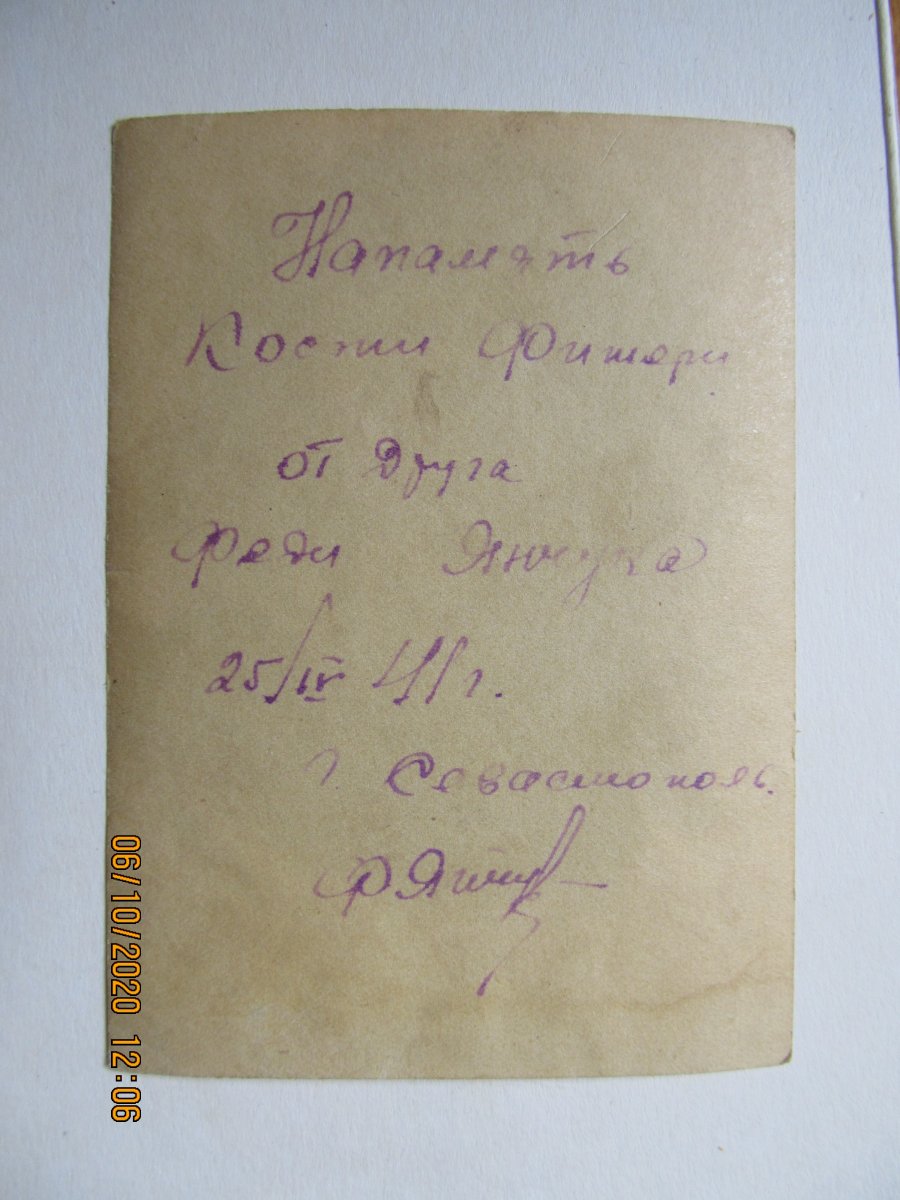 Напамять
Кости
от Друга
Феди Янчука
25/IV 41 г.
г Севастополь.
06/10/2020 12:06